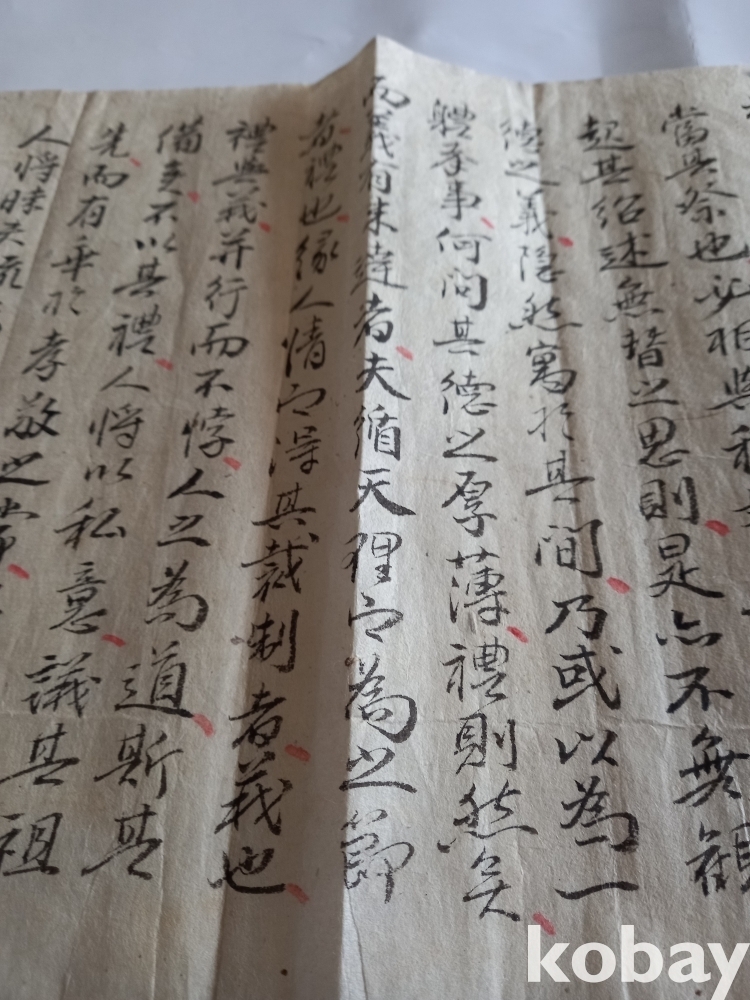 當其祭也必相與
起其紹述無替之思則是亦不無觀
德之義隱然寓於其間乃或以為一
體奉事何問其德之厚薄禮則然矣
而義有未達者夫循天理而為之節
者禮也緣人情而得其裁制者義也
禮與義并行而不悖人之為道斯其
備矣不以其禮人將以私意議其祖
先而有乖於孝敬之節
人將昧夫
kobay